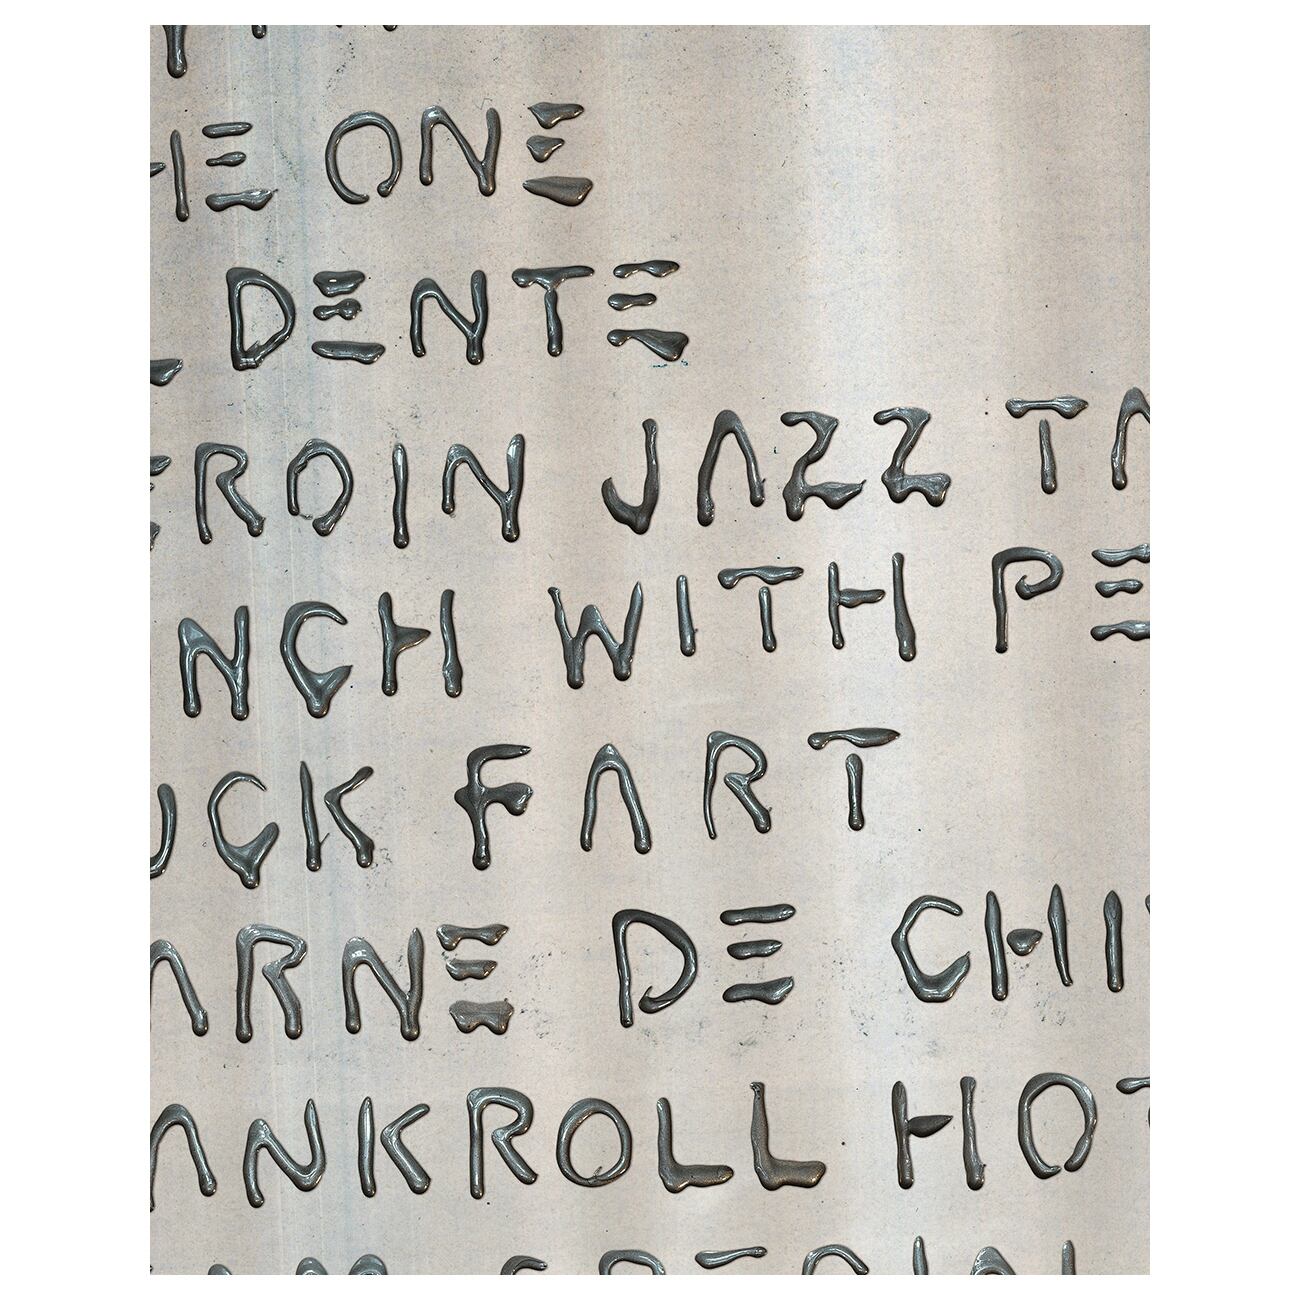 HE ONE
DENTE
EROIN JAZZ TA
NCH WITH PE
UCK FART
ARNE DE CHI
ANKROLL HOT